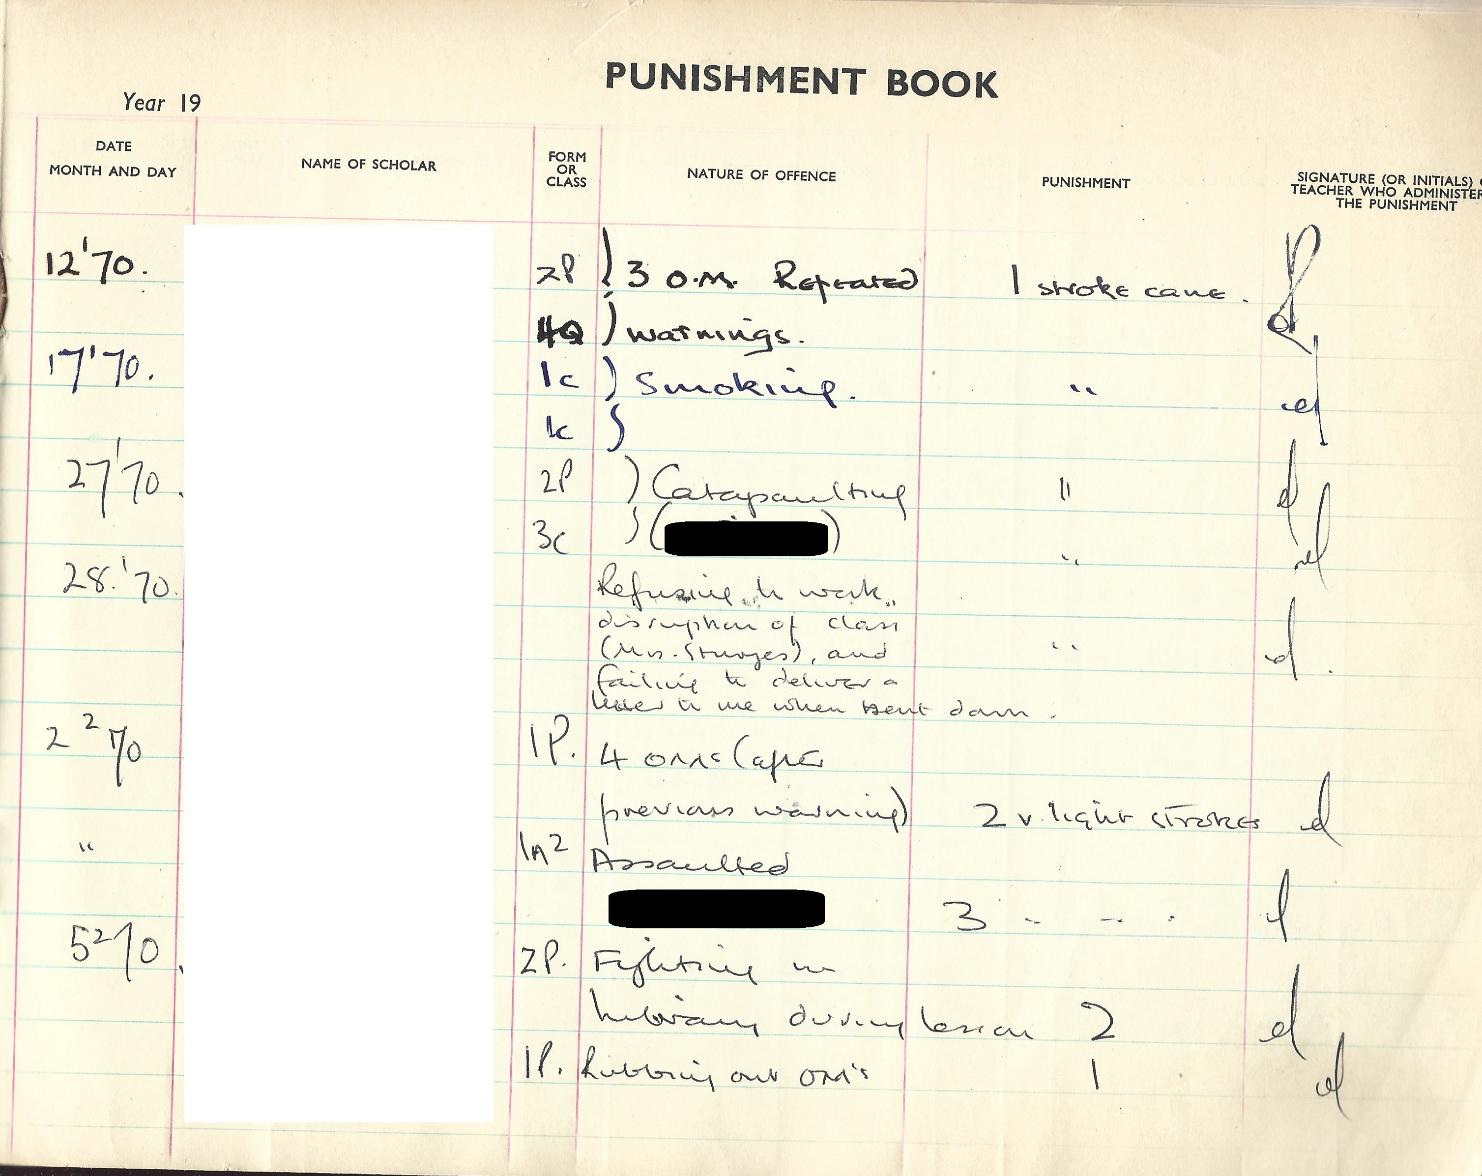 PUNISHMENT BOOK
Year 19
DATE
MONTH AND DAY
NAME OF SCHOLAR
FORM
OR
CLASS
NATURE OF OFFENCE
PUNISHMENT
SIGNATURE (OR INITIALS)
TEACHER WHO ADMINISTER
THE PUNISHMENT
12'70. 2P ) 3 O.M. Repeated 1 stroke cane.
4Q ) warnings.
17'70. 1c ) Smoking. "
1c )
27'70. 2P ) Catapaulting "
3c ) ( ) "
28.'70. Refusing to work,
disruption of class
(Mrs. Sturges), and "
failing to deliver a
letter to me when sent down.
2 2 70 1P. 4 OMs (after
previous warning) 2 v. light strokes
" 1A2 Assaulted
3 " " "
5 2 70. 2P. Fighting in
library during lesson 2
1P. Rubbing out OM's 1